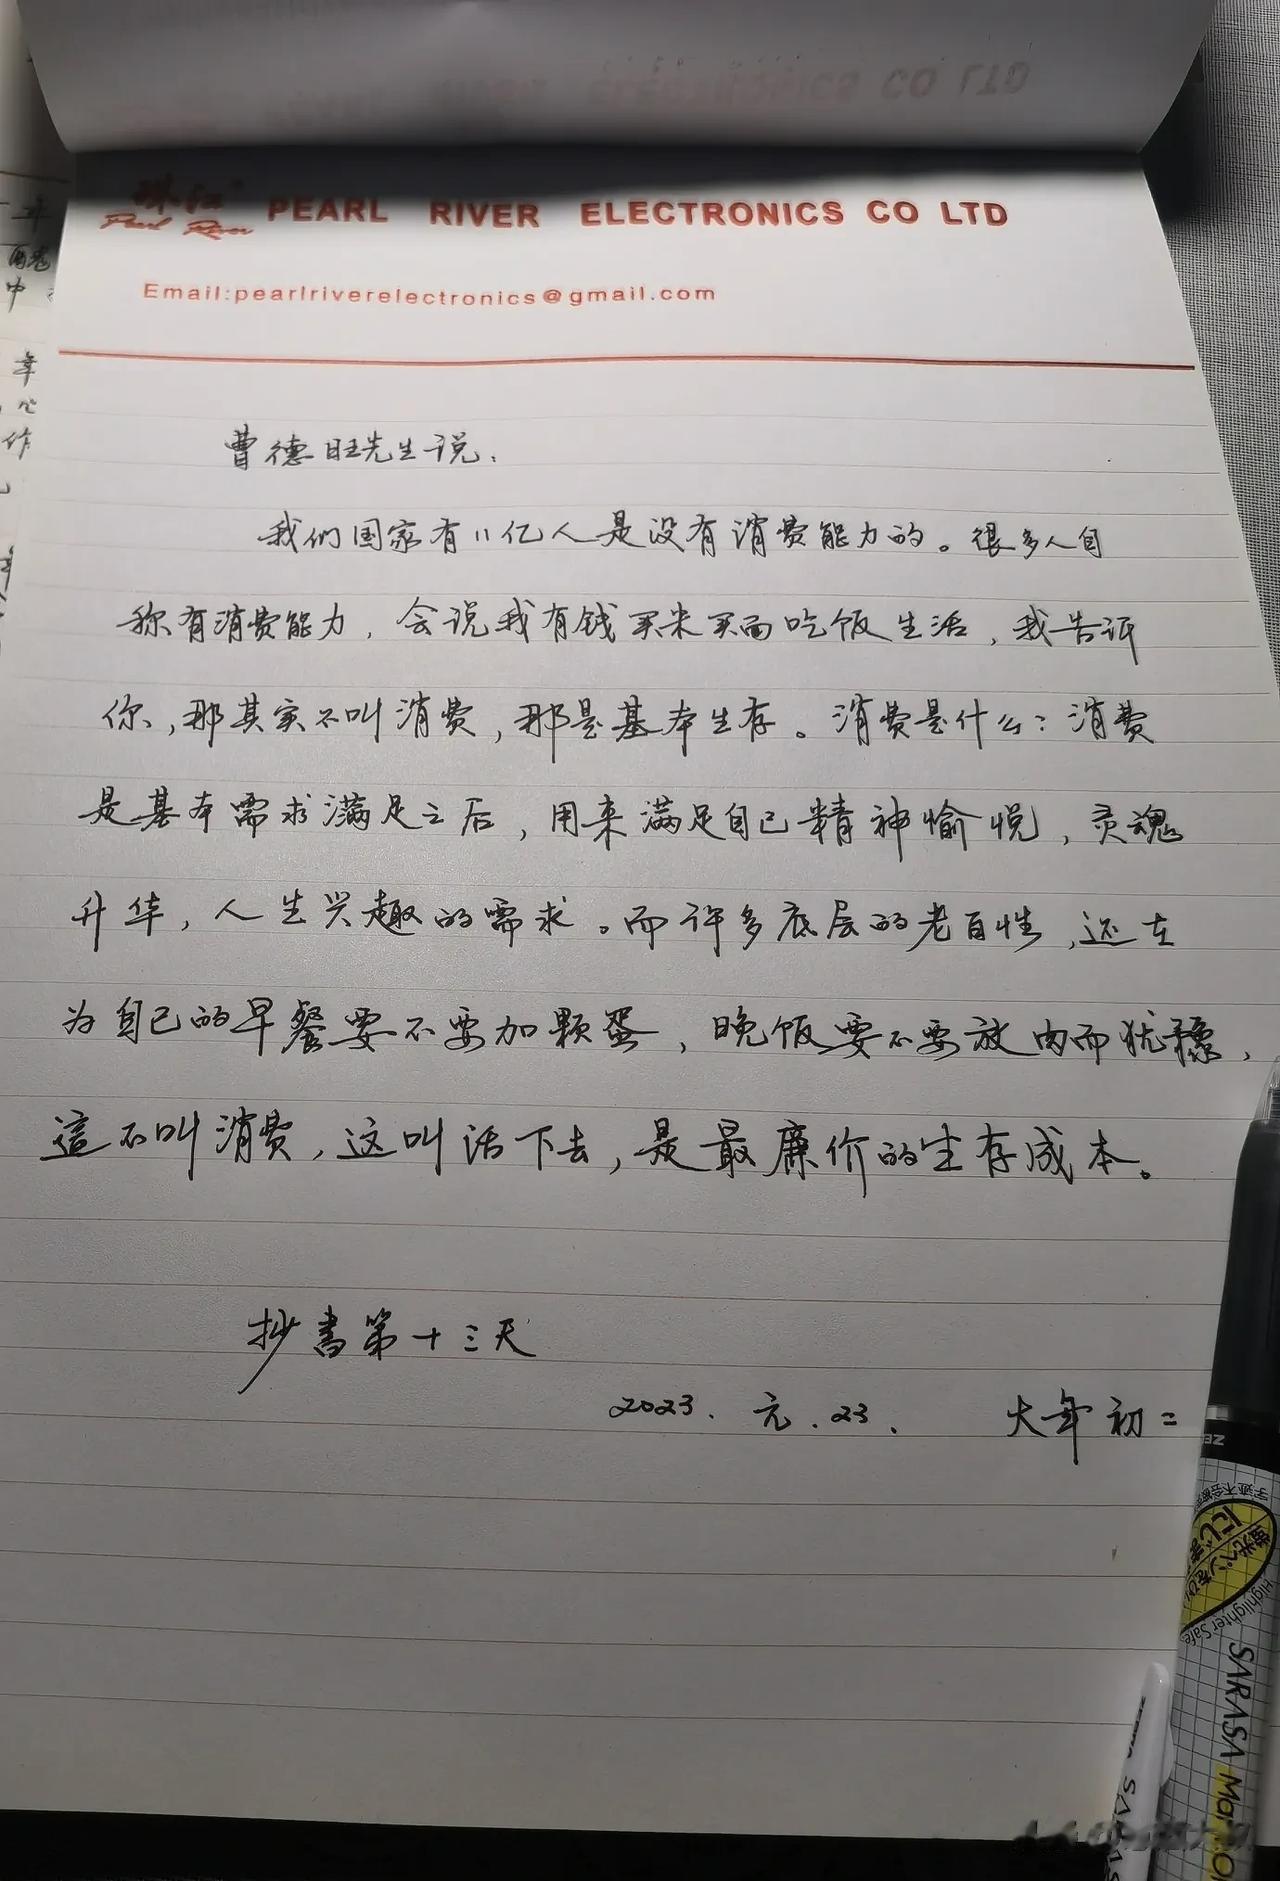 CO LTD
珠江
Pearl River
PEARL RIVER ELECTRONICS CO LTD
Email:pearlriverelectronics@gmail.com
曹德旺先生说.
我们国家有11亿人是没有消费能力的。很多人自
称有消费能力，会说我有钱买米买面吃饭生活，我告诉
你，那其实不叫消费，那是基本生存。消费是什么？消费
是基本需求满足之后，用来满足自己精神愉悦，灵魂
升华，人生兴趣的需求。而许多底层的老百性，还在
为自己的早餐要不要加颗蛋，晚饭要不要放肉而犹豫，
這不叫消费，这叫活下去，是最廉价的生存成本。
抄書第十三天
2023. 元. 23. 大年初二
年
中
年
作
ZE
蛍光ペンを
にじま
Highlighter Safe
SARASA Mar
SA